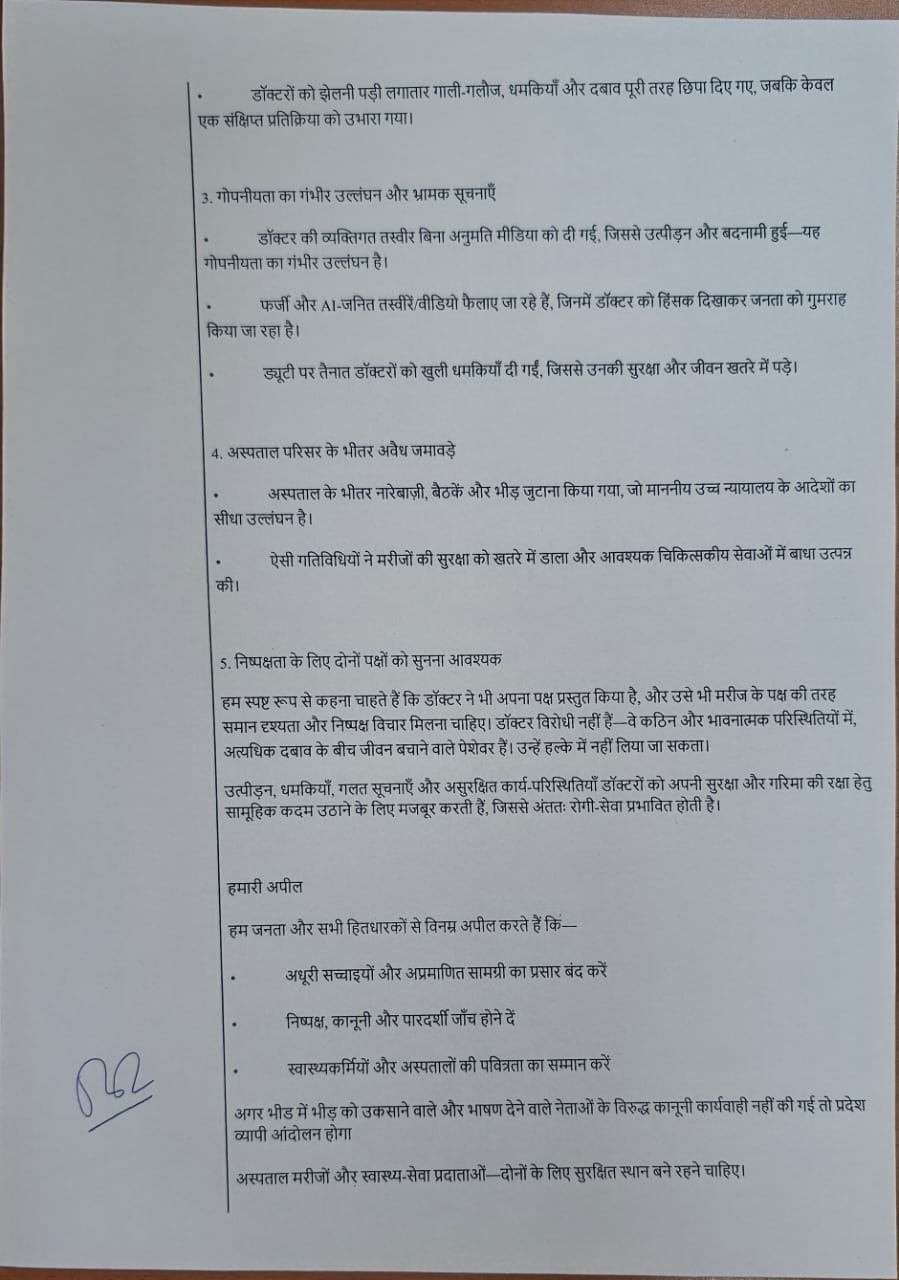 • डॉक्टरों को झेलनी पड़ी लगातार गाली-गलौज, धमकियाँ और दबाव पूरी तरह छिपा दिए गए, जबकि केवल
एक संक्षिप्त प्रतिक्रिया को उभारा गया।
3. गोपनीयता का गंभीर उल्लंघन और भ्रामक सूचनाएँ
• डॉक्टर की व्यक्तिगत तस्वीर बिना अनुमति मीडिया को दी गई, जिससे उत्पीड़न और बदनामी हुई—यह
गोपनीयता का गंभीर उल्लंघन है।
• फर्जी और AI-जनित तस्वीरें/वीडियो फैलाए जा रहे हैं, जिनमें डॉक्टर को हिंसक दिखाकर जनता को गुमराह
किया जा रहा है।
• ड्यूटी पर तैनात डॉक्टरों को खुली धमकियाँ दी गईं, जिससे उनकी सुरक्षा और जीवन खतरे में पड़े।
4. अस्पताल परिसर के भीतर अवैध जमावड़े
• अस्पताल के भीतर नारेबाज़ी, बैठकें और भीड़ जुटाना किया गया, जो माननीय उच्च न्यायालय के आदेशों का
सीधा उल्लंघन है।
• ऐसी गतिविधियों ने मरीजों की सुरक्षा को खतरे में डाला और आवश्यक चिकित्सकीय सेवाओं में बाधा उत्पन्न
की।
5. निष्पक्षता के लिए दोनों पक्षों को सुनना आवश्यक
हम स्पष्ट रूप से कहना चाहते हैं कि डॉक्टर ने भी अपना पक्ष प्रस्तुत किया है, और उसे भी मरीज के पक्ष की तरह
समान दृश्यता और निष्पक्ष विचार मिलना चाहिए। डॉक्टर विरोधी नहीं हैं—वे कठिन और भावनात्मक परिस्थितियों में,
अत्यधिक दबाव के बीच जीवन बचाने वाले पेशेवर हैं। उन्हें हल्के में नहीं लिया जा सकता।
उत्पीड़न, धमकियाँ, गलत सूचनाएँ और असुरक्षित कार्य-परिस्थितियाँ डॉक्टरों को अपनी सुरक्षा और गरिमा की रक्षा हेतु
सामूहिक कदम उठाने के लिए मजबूर करती हैं, जिससे अंततः रोगी-सेवा प्रभावित होती है।
हमारी अपील
हम जनता और सभी हितधारकों से विनम्र अपील करते हैं कि—
• अधूरी सच्चाइयों और अप्रमाणित सामग्री का प्रसार बंद करें
• निष्पक्ष, कानूनी और पारदर्शी जाँच होने दें
• स्वास्थ्यकर्मियों और अस्पतालों की पवित्रता का सम्मान करें
अगर भीड में भीड़ को उकसाने वाले और भाषण देने वाले नेताओं के विरुद्ध कानूनी कार्यवाही नहीं की गई तो प्रदेश
व्यापी आंदोलन होगा
अस्पताल मरीजों और स्वास्थ्य-सेवा प्रदाताओं—दोनों के लिए सुरक्षित स्थान बने रहने चाहिए।